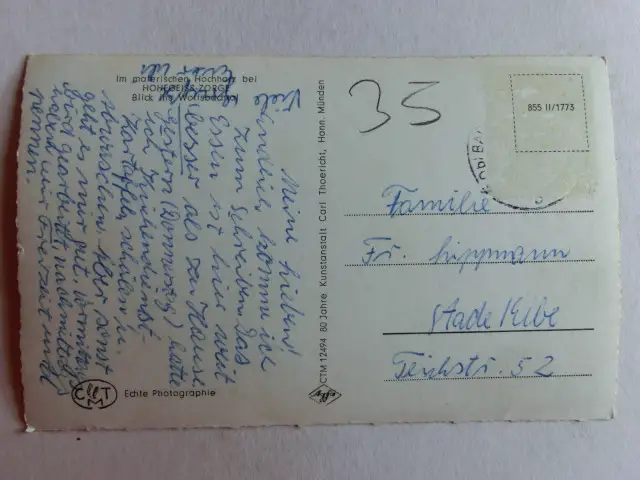 Im malerischen Hochharz bei
HOHEGEISS-ZORGE
Blick ins Wolfsbachtal
Meine Lieben!
Endlich komme ich
zum Schreiben. Das
Essen ist hier weit
besser als zu Hause
Gestern (Donnerstag) hatte
ich Küchendienst
Kartoffeln schälen u.
abwaschen. Aber sonst
geht es mir gut. Vormittags
wird gearbeitet nachmittags
haben wir Freizeit und
Viele
CTM
Echte Photographie
CTM 12494 80 Jahre. Kunstanstalt Carl Thoericht, Hann. Münden
35
855 II/1773
Familie
Fr. Lippmann
Stade Elbe
Teichstr. 52